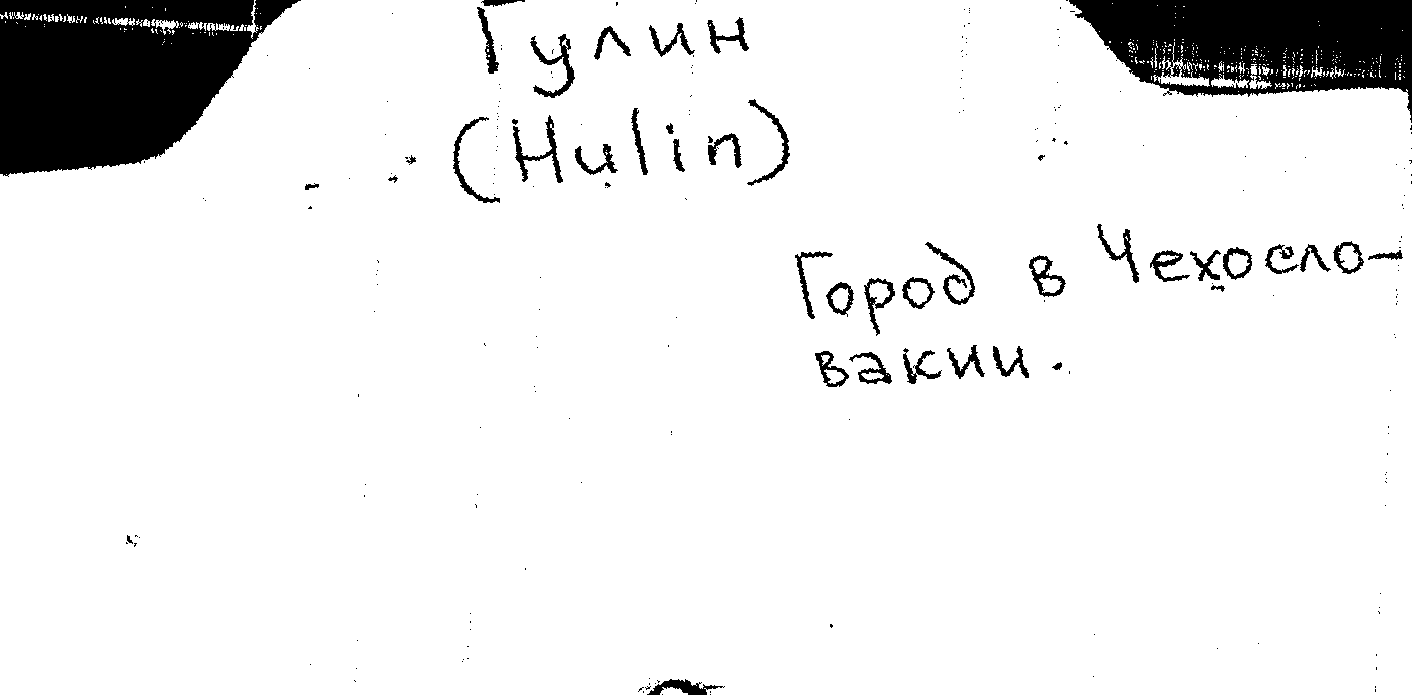 Гулин
(Hulin)
Город в Чехосло-
вакии.